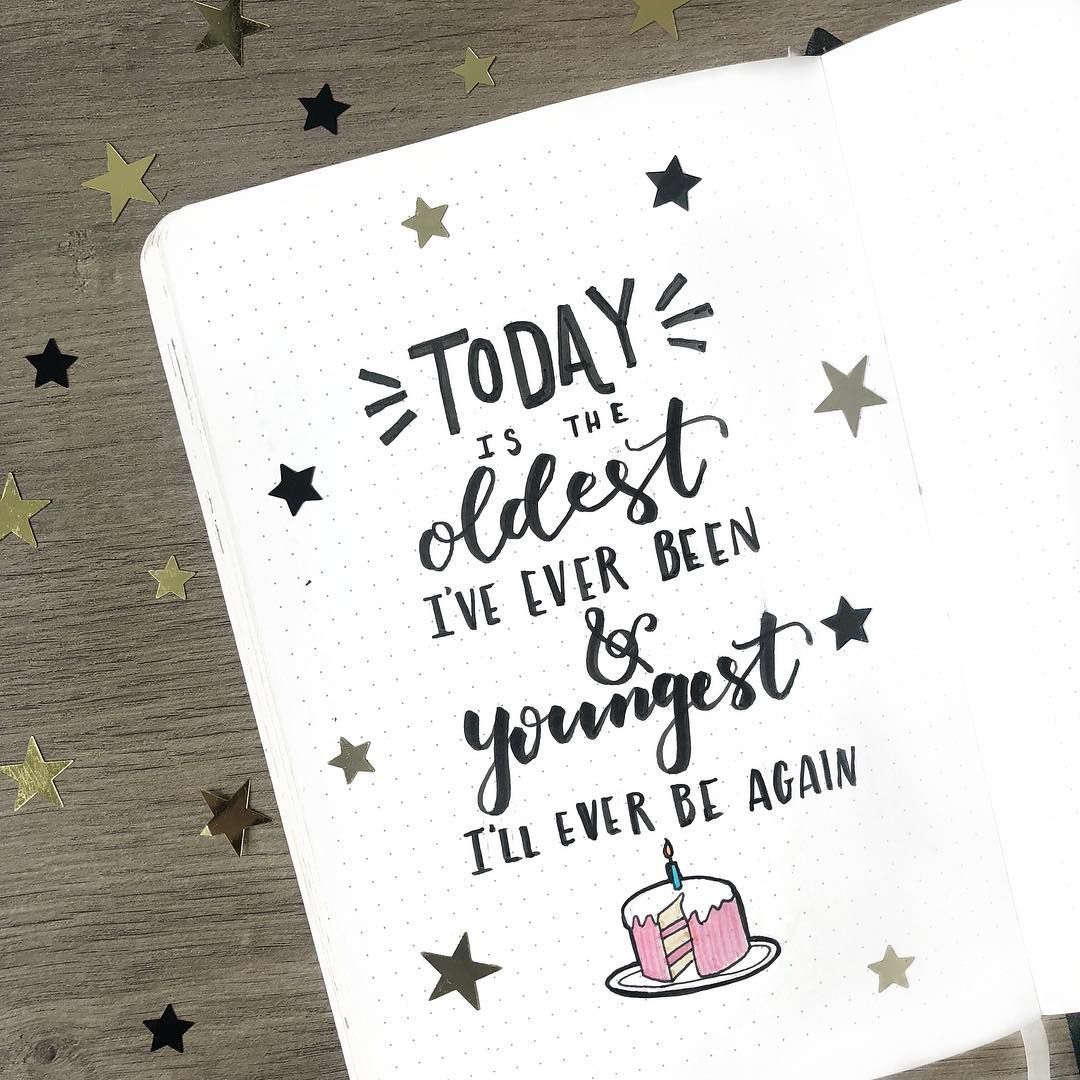 TODAY
IS THE
oldest
I'VE EVER BEEN
&
youngest
I'LL EVER BE AGAIN